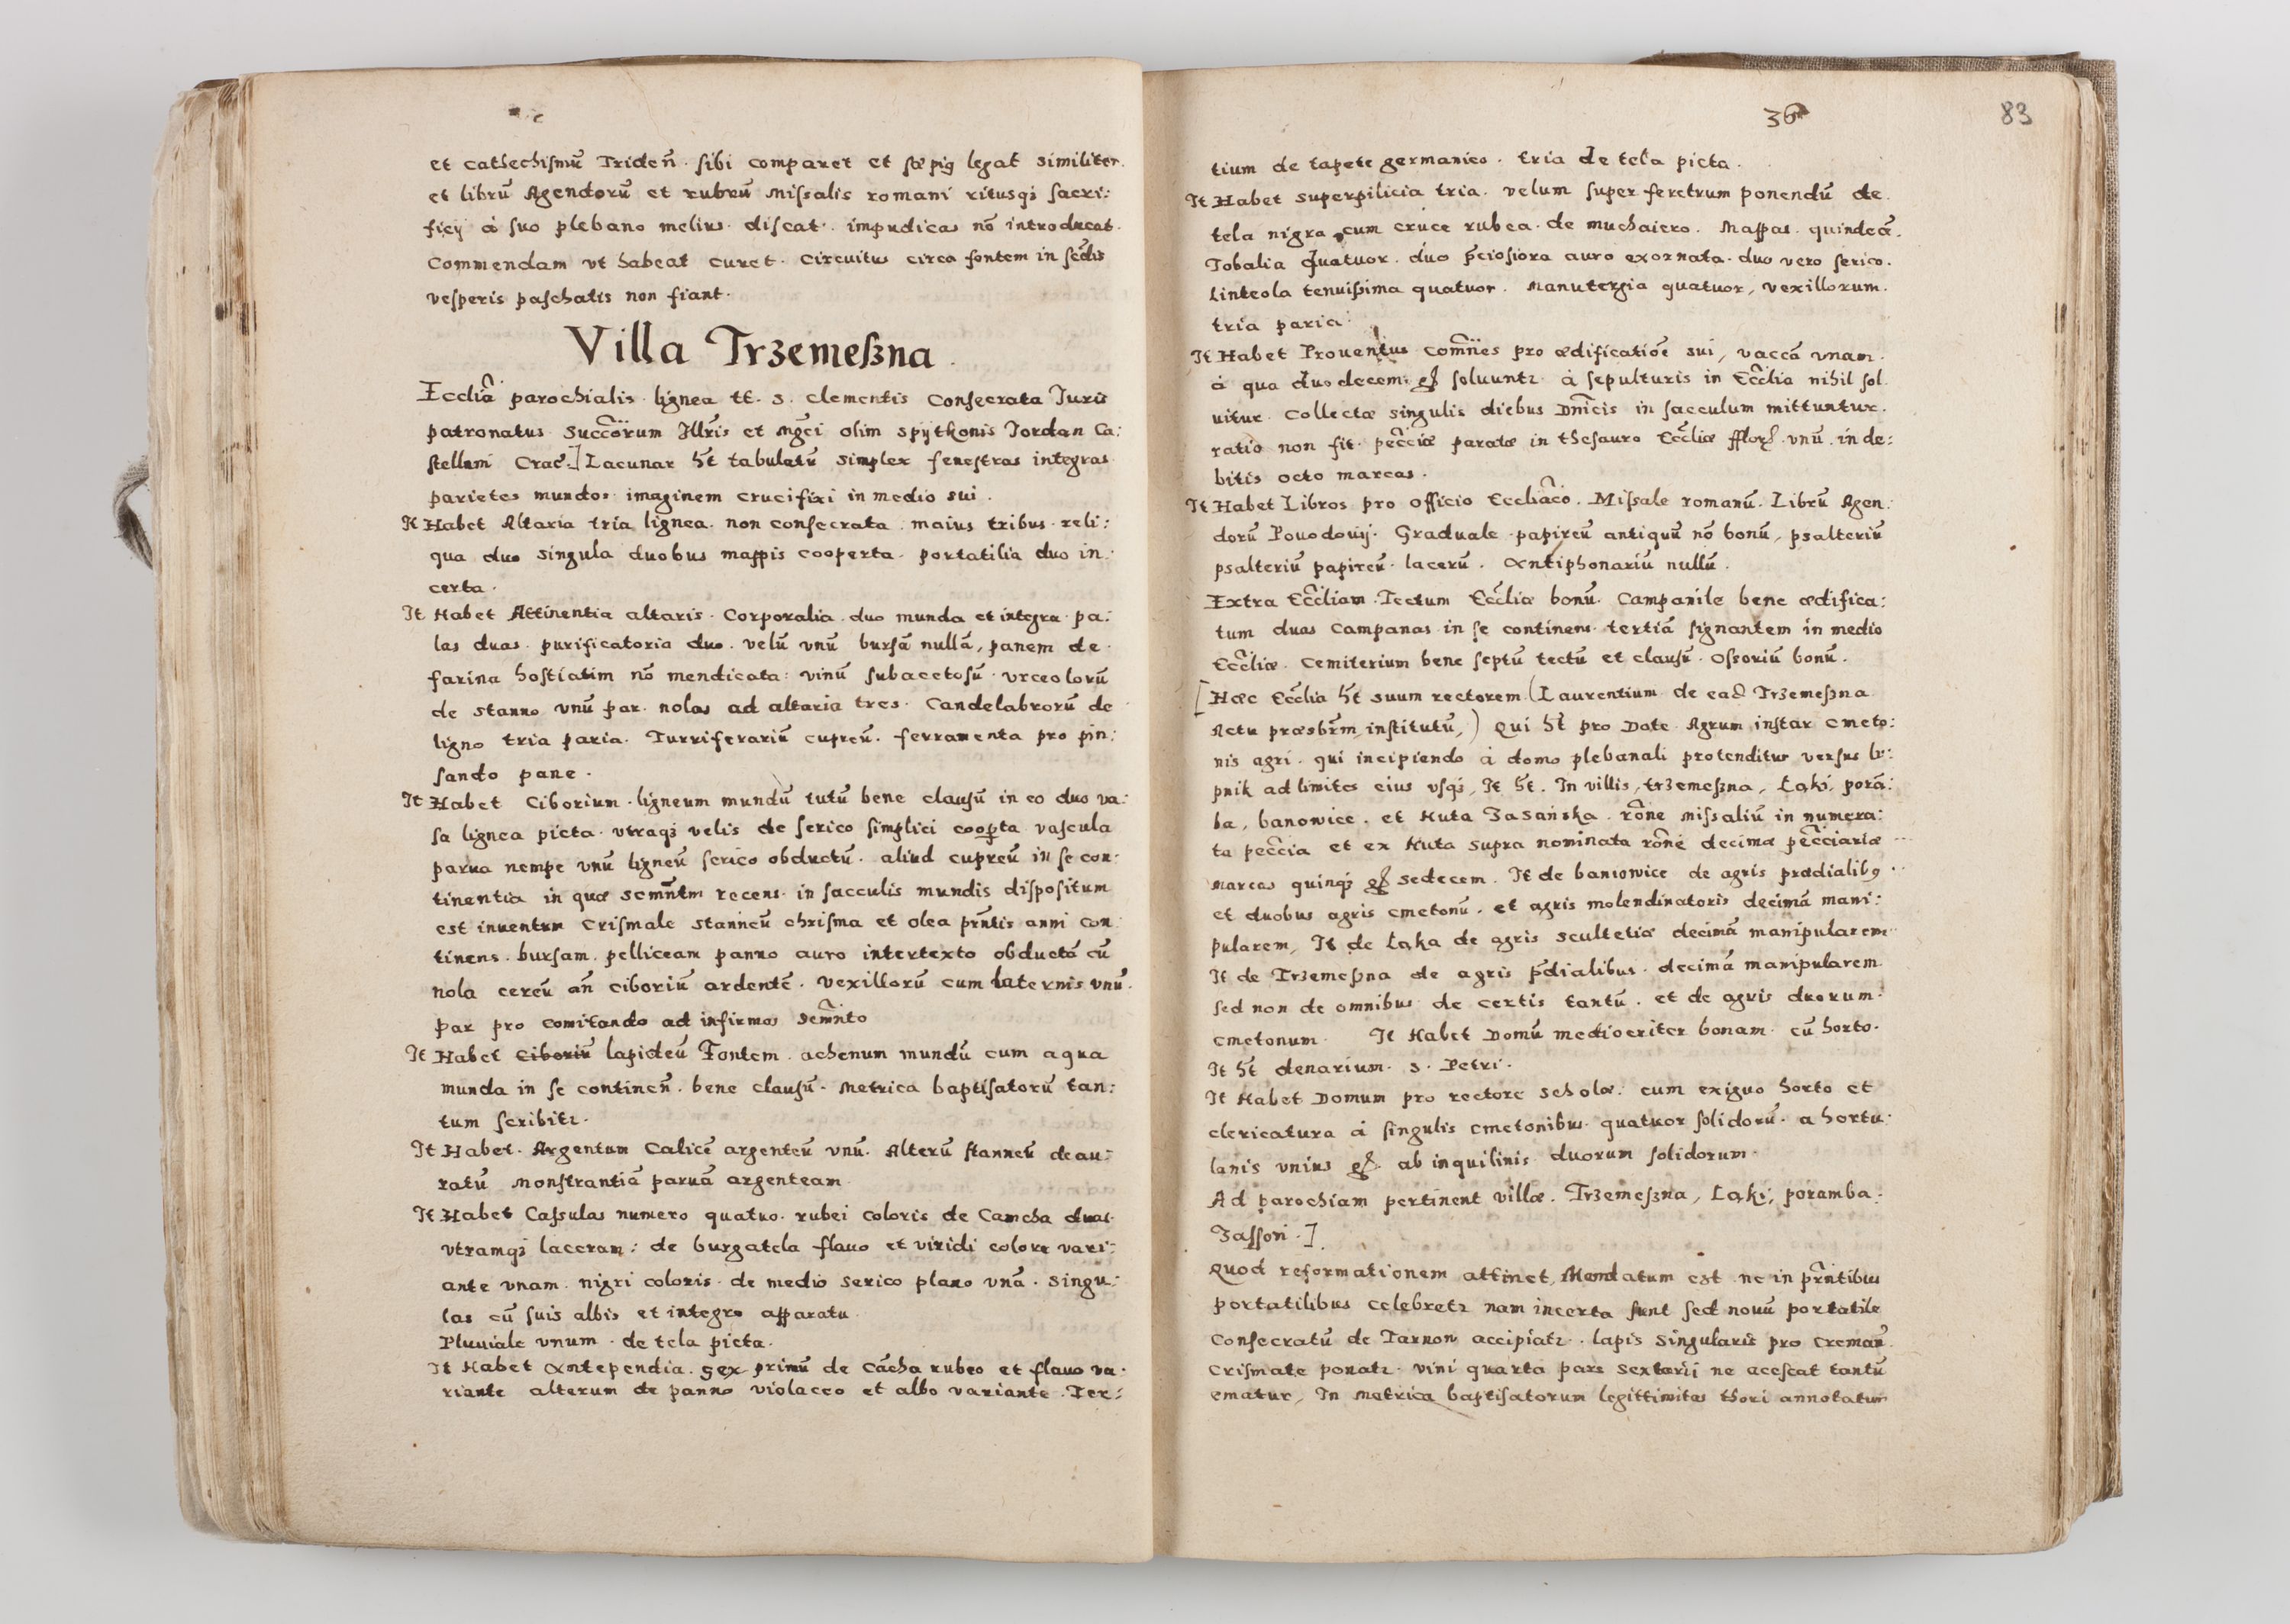 et cathechismũ Trideñ. sibi comparet et sæpiꝯ legat similiter.
et librũ Agendorũ et rubrũ Missalis romani ritusqȝ sacri:
ficij à suo plebano melius discat. impudicas nõ introducat.
Commendam vt habeat curet. Circuitus circa fontem in fẽdis
vesperis paschatis non fiant.
Villa Trzemeßna.
Ecclia parochialis lignea tt. s. Clementis Consecrata Juris
patronatus Succorum Jllris et Mgci olim Spytkonis Jordan Ca:
stellani Crac.] Lacunar ht tabulatũ Simplex fenestras integras
parietes mundos imaginem Crucifixi in medio sui.
It Habet Altaria tria lignea. non consecrata. maius tribus. reli:
qua duo singula duobus mappis cooperta. portatilia duo in:
certa.
It Habet Attinentia altaris. Corporalia. duo munda et integra. pa:
las duas. purificatoria duo. velũ vnũ bursã nullã, panem de
farina hostiatim nõ mendicata: vinũ subacetosũ. vrceolorũ
de stanno vnũ par. nolas ad altaria tres. Candelabrorũ de
ligno tria paria. Turriferariũ cupreũ. ferramenta pro pin:
sando pane.
It Habet Ciborium. ligneum mundũ tutũ bene clausũ in eo duo va:
sa lignea picta. vtraqȝ velis de serico simplici coopta vascula
parua nempe vnũ ligneũ serico obductũ. aliud cupreũ in se con:
tinentia in quæ Semntm recens. in sacculis mundis dispositum
est inuentum Crismale stanneũ chrisma et olea pnntis anni con
tinens. bursam. pelliceam panno auro intertexto obductã cũ
nola cereũ añ ciboriũ ardentẽ. vexillorũ cum laternis vnũ.
par pro comitando ad infirmos Semnto
It Habet Ciboriũ lapideũ Fontem. achenum mundũ cum aqua
munda in se continen. bene clausũ. Metrica baptisatorũ tan:
tum scribitz.
It Habet. Argentum Calicẽ argenteũ vnũ. Alterũ stanneũ deau:
ratũ Monstrantiã paruã argenteam
It Habet Cassulas numero quatuo. rubei coloris de Camcha duas.
vtramqȝ laceram: de burgatela flauo et viridi colore vari:
ante vnam. nigri coloris. de medio serico plano vnã. Singu:
las cũ suis albis et integro apparatu.
Pluuiale vnum. de tela picta.
It Habet Antependia. sex primũ de Cãcha rubeo et flauo va.
riante alterum de panno violaceo et albo variante. Ter:
36
83
tium de tapete germanico. tria de tela picta.
It Habet superpilicia tria. velum super feretrum ponendũ de
tela nigra, cum cruce rubea. de muchaiero. Mappas. quindecẽ.
Tobalia quatuor. duo pciosiora auro exornata. duo vero serico.
Linteola tenuißima quatuor. Manutergia quatuor, vexillorum.
tria paria.
It Habet Prouentus comnes pro ædificatiõe sui, vaccã vnam.
à qua duodecem gſ soluuntz. à sepulturis in Ecclia nihil sol
uitur. Collectæ singulis diebus Dnicis in sacculum mittuntur.
ratio non fit. pecciæ paratæ in thesauro Eccliæ fflorſ. vnũ. in de:
bitis octo marcas.
It Habet Libros pro officio Eccliaco. Missale romanũ. Librũ Agen.
dorũ Pouodouij. Graduale papireũ antiquũ nõ bonũ, psalteriũ
psalteriũ papireũ lacerũ. Antiphonariũ nullũ.
Extra Eccliam. Tectum Eccliæ bonũ. Campanile bene ædifica:
tum duas Campanas in se continens. tertiã signantem in medio
Eccliæ. Cemiterium bene septũ tectũ et clausũ. Ossoriũ bonũ.
[Hæc Ecclia ht suum rectorem (Laurentium de ead Trzemeßna
Actu præsbrm, institutũ,) Qui ht pro Dote Agrum instar cmeto:
nis agri. qui incipiendo à domo plebanali protenditur versus lv:
pnik ad limites eius vsqȝ, It ht. In villis, trzemeßna, Łąki, porã:
ba, banowice. et Huta Jasańska. rõne missaliũ in numera:
ta peccia et ex Huta supra nominata rõne decimæ pecciariæ
Marcas quinqȝ gſ sedecem. It de banowice de agris prædialibꝯ.
et duobus agris cmetonũ. et agris molendinatoris decimã mani:
pularem, It de Łąka de agris scultetiæ decimã manipularem
It de Trzemeßna de agris pdialibus. decimã manipularem.
sed non de omnibus de certis tantũ. et de agris duorum.
cmetonum. It Habet Domũ mediocriter bonam. cũ horto.
It ht denarium. S. Petri.
It Habet Domum pro rectore scholæ. cum exiguo horto et
clericatura à singulis cmetonibus. quatuor solidorũ. a hortu.
lanis vnius gſ. ab inquilinis duorum solidorum.
Ad parochiam pertinent villæ. Trzemeßna, Łąki, poramba.
Jasson.]
Quod reformationem attinet, Mandatum est ne in prntibus
portatilibus celebretz nam incerta sunt sed nouũ portatile
Consecratũ de Tarnow accipiatz. lapis Singularis pro creman.
Crismate ponatz. vini quarta pars sextarii ne acescat tantũ
ematur, In Metrica baptisatorum legittimitas thori annotatur